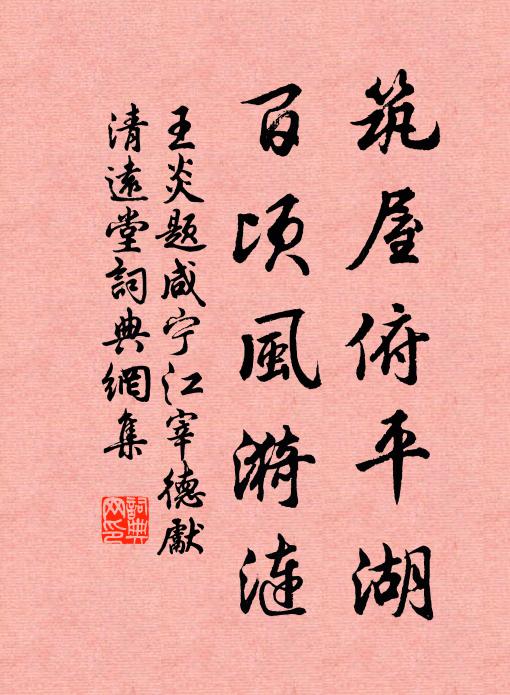 筑屋俯平湖
百顷風漪漣
王炎题咸宁江宰德獻
清遠堂詞典網集
詞典网印